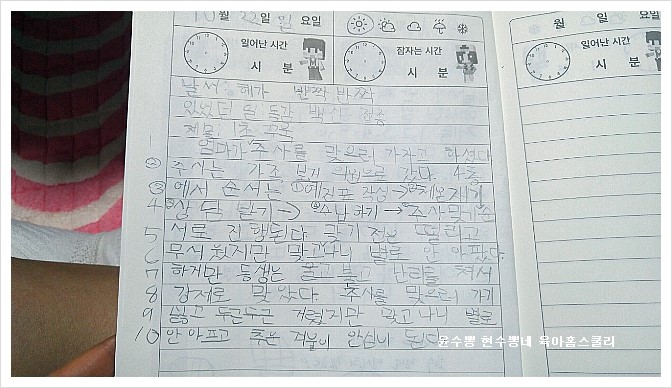 10월 22일 일 요일 월 일 요일
일어난 시간 잠자는 시간 일어난 시간
시 분 시 분 시 분
날씨: 해가 반짝 반짝
있었던 일 독감 백신 접종
제목: 1초 꾹꾹
1 엄마가 주사를 맞으러 가자고 하셨다
② 주사는 가조 보기 의원으로 갔다. 4층
③ 에서 순서는 ①예진표 작성→②체온재기
4 ③상담 받기→④수납하기→⑤주사맞기순
5 서로 진행된다. 맞기 전은 떨리고
6 무서웠지만 맞고나니 별로 안 아팠다.
7 하지만 동생은 울고불고 난리를 쳐서
8 강제로 맞았다. 주사를 맞으러 가기
9 싫고 두근두근 거렸지만 맞고 나니 별로
10 안 아프고 추운 겨울이 안심이 된다.
윤수뿡 현수뿡네 육아홈스쿨리